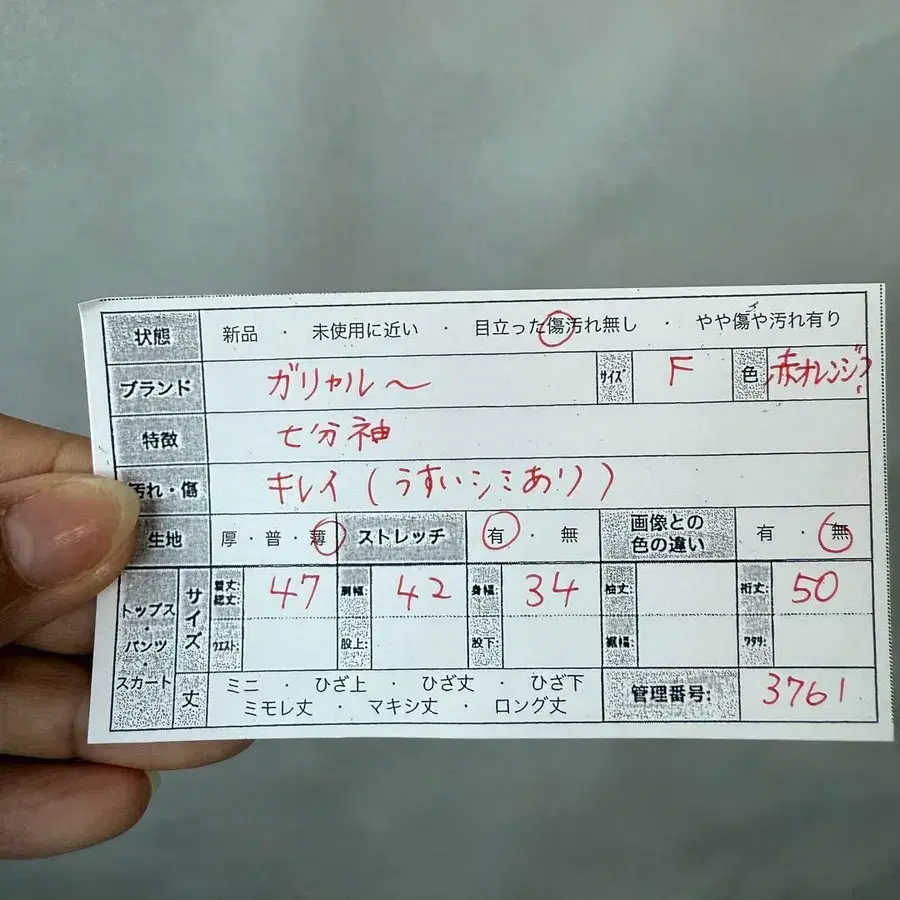 状態 新品 ・ 未使用に近い ・ 目立った傷汚れ無し ・ やや傷や汚れ有り
ブランド ガリャルー〜 サイズ F 色 赤オレンジ?
特徴 七分袖
汚れ・傷 キレイ(うすいシミあり)
生地 厚・普・薄 ストレッチ 有・無 画像との色の違い 有・無
トップス・パンツ・スカート サイズ 着丈:総丈: 47 肩幅: 42 身幅: 34 袖丈: 裄丈: 50
ウエスト: 股上: 股下: 裾幅: ワタリ:
丈 ミニ ・ ひざ上 ・ ひざ丈 ・ ひざ下
ミモレ丈 ・ マキシ丈 ・ ロング丈 管理番号: 3761